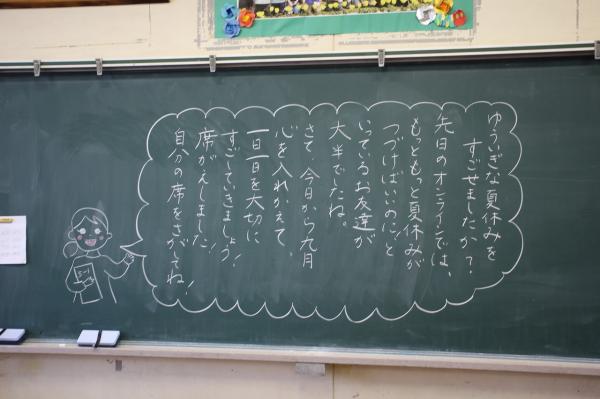 ゆういぎな夏休みを
すごせましたか?
先日のオンラインでは、
もっともっと夏休みが
つづけばいいのに、と
いっているお友達が
大半でしたね。
さて、今日から九月
心を入れかえて、
一日一日を大切に
すごしていきましょう!
席がえしました!
自分の席をさがしてね!